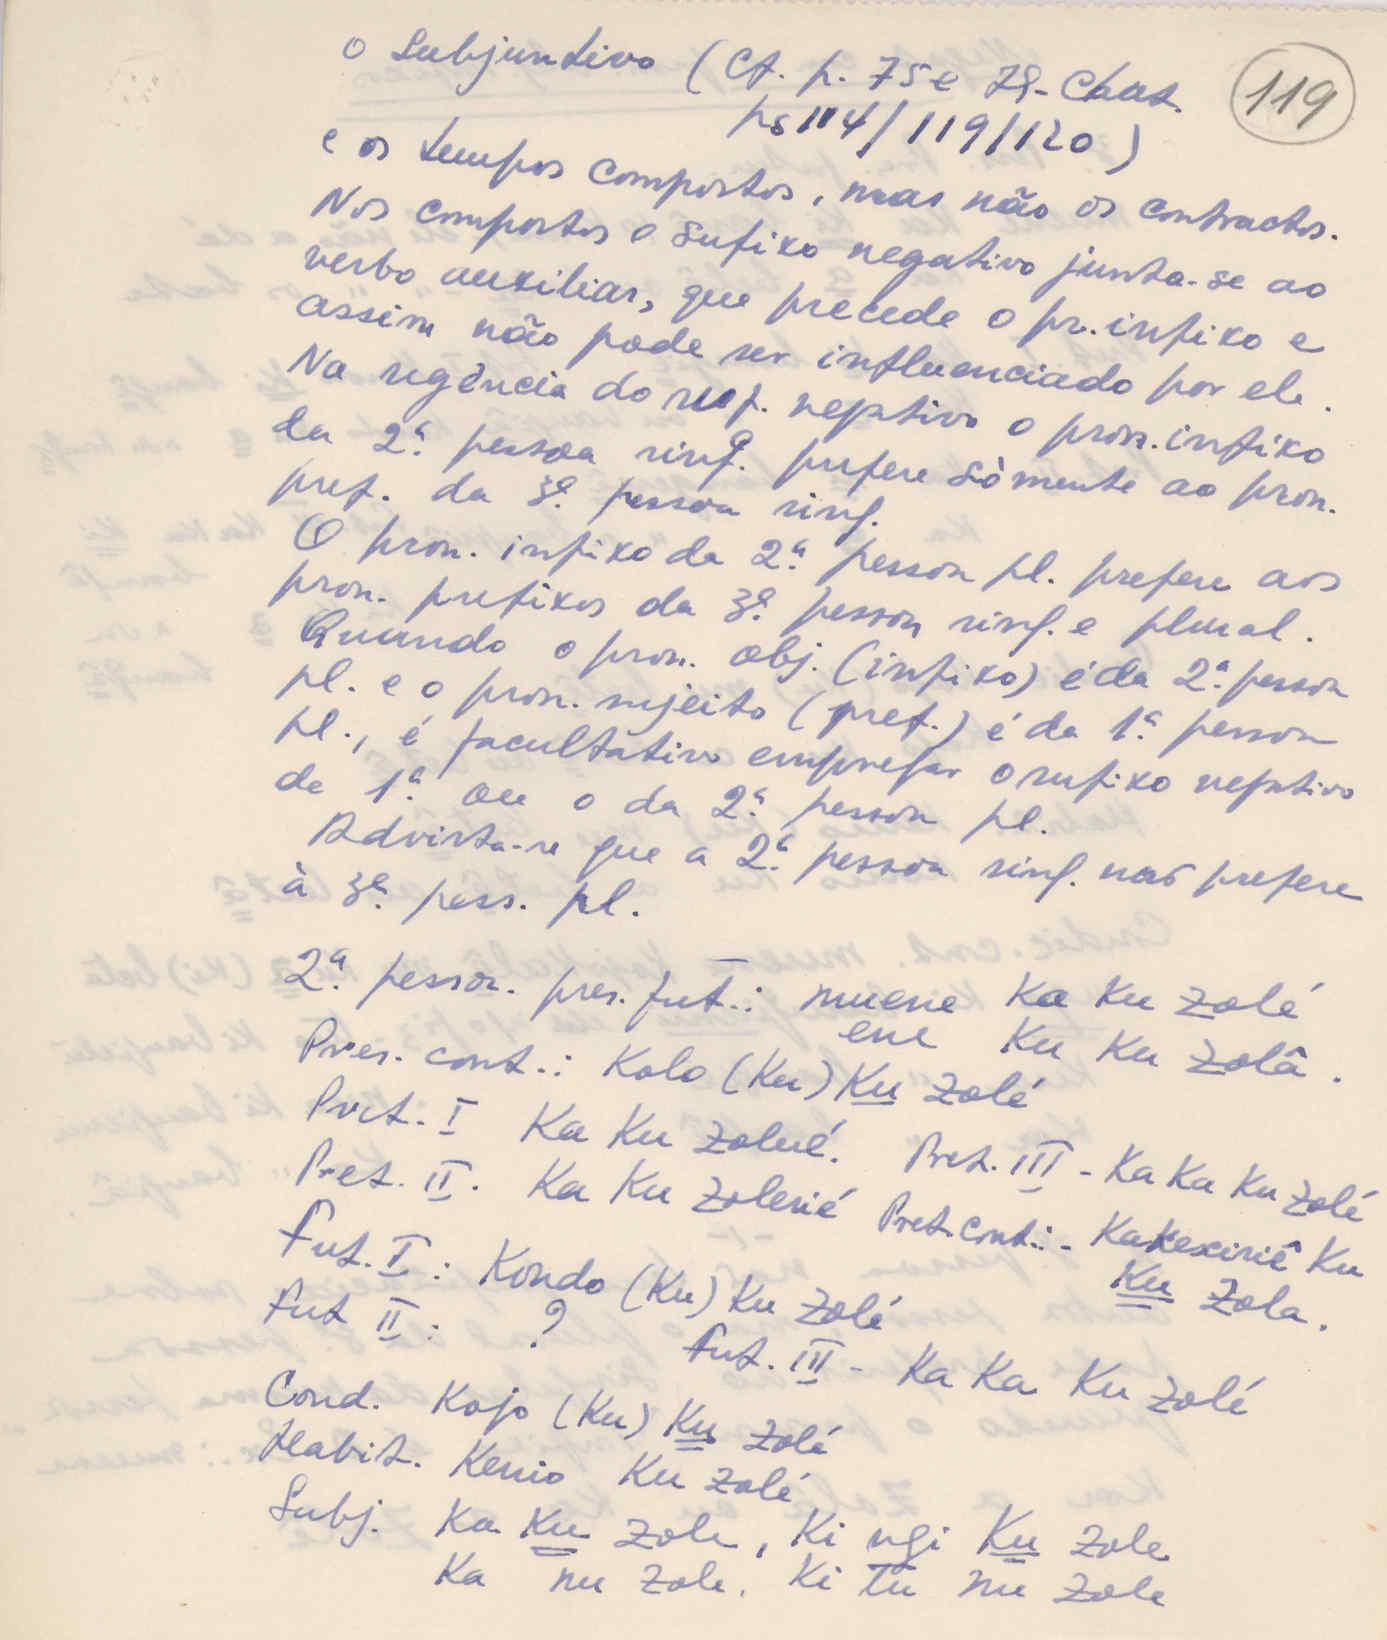 119
o Subjuntivo (Cf. p. 75 e 79 - Chat.
ps 114/119/120)
e os tempos compostos, mas não os contractos.
Nos compostos o sufixo negativo junta-se ao
verbo auxiliar, que precede o pr. infixo e
assim não pode ser influenciado por ele.
Na regência do suf. negativo o pron. infixo
da 2ª pessoa sing. prefere sòmente ao pron.
pref. da 3ª pessoa sing.
O pron. infixo da 2ª pessoa pl. prefere aos
pron. prefixos da 3ª pessoa sing. e plural.
Quando o pron. obj. (infixo) é da 2ª pessoa
pl. e o pron. sujeito (pref.) é da 1ª pessoa
pl., é facultativo empregar o sufixo negativo
da 1ª ou o da 2ª pessoa pl.
Advirta-se que a 2ª pessoa sing. não prefere
à 3ª pess. pl.
2ª pessoa. pres. fut.: muene Ka Ku zolé
ene Ku Ku zolâ.
Pres. cont.: Kolo (Ku) Ku zolé
Pret. I Ka Ku zolué. Pret. III - Ka Ka Ku zolé
Pret. II. Ka Ku zolerié Pret. cont.: - Kakexiriê Ku
Ku zola.
Fut. I: Kondo (Ku) Ku zolé
Fut II: ? Fut. III - Ka Ka Ku zolé
Cond. Kojo (Ku) Ku zolé
Habit. Kenio Ku zolé
Subj. Ka Ku zole, Ki ngi Ku zole
Ka nu zole. Ki tu nu zole